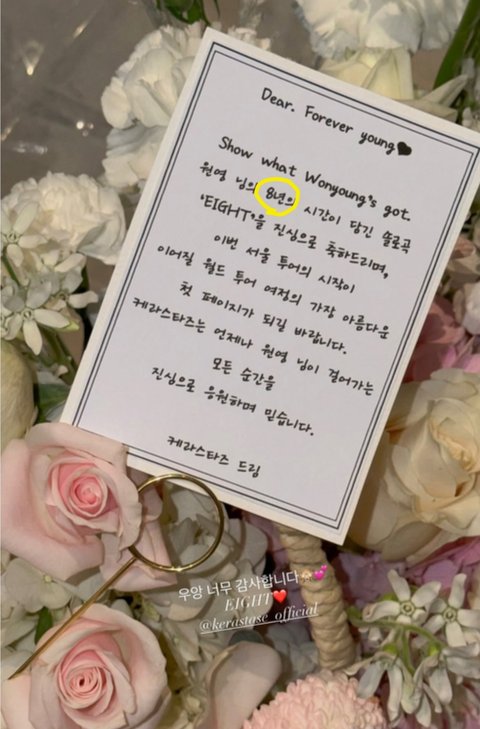 Dear. Forever young♥
Show what Wonyoung's got.
원영 님의 8년의 시간이 담긴 솔로곡
'EIGHT'을 진심으로 축하드리며,
이번 서울 투어의 시작이
이어질 월드 투어 여정의 가장 아름다운
첫 페이지가 되길 바랍니다.
케라스타즈는 언제나 원영 님이 걸어가는
모든 순간을
진심으로 응원하며 믿습니다.
케라스타즈 드림
우앙 너무 감사합니다🙈💕
EIGHT❤️
@kerastase_official